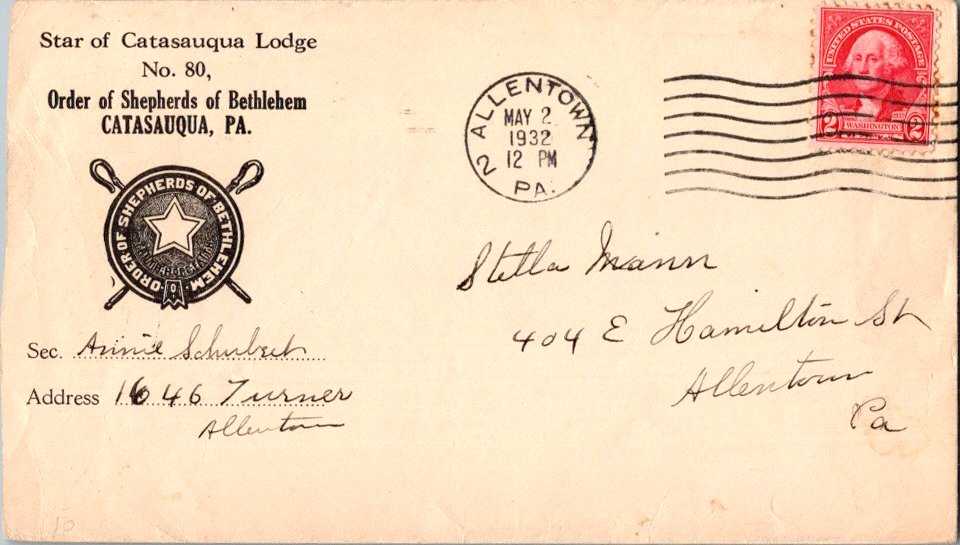 Star of Catasauqua Lodge
No. 80,
Order of Shepherds of Bethlehem
CATASAUQUA, PA.
ORDER OF SHEPHERDS OF BETHLEHEM
Sec. Annie Schubert
Address 1646 Turner
Allentown
ALLENTOWN
MAY 2
1932
12 PM
2 PA.
UNITED STATES POSTAGE
WASHINGTON
2 2
Stella Mann
404 E Hamilton St
Allentown
Pa
10